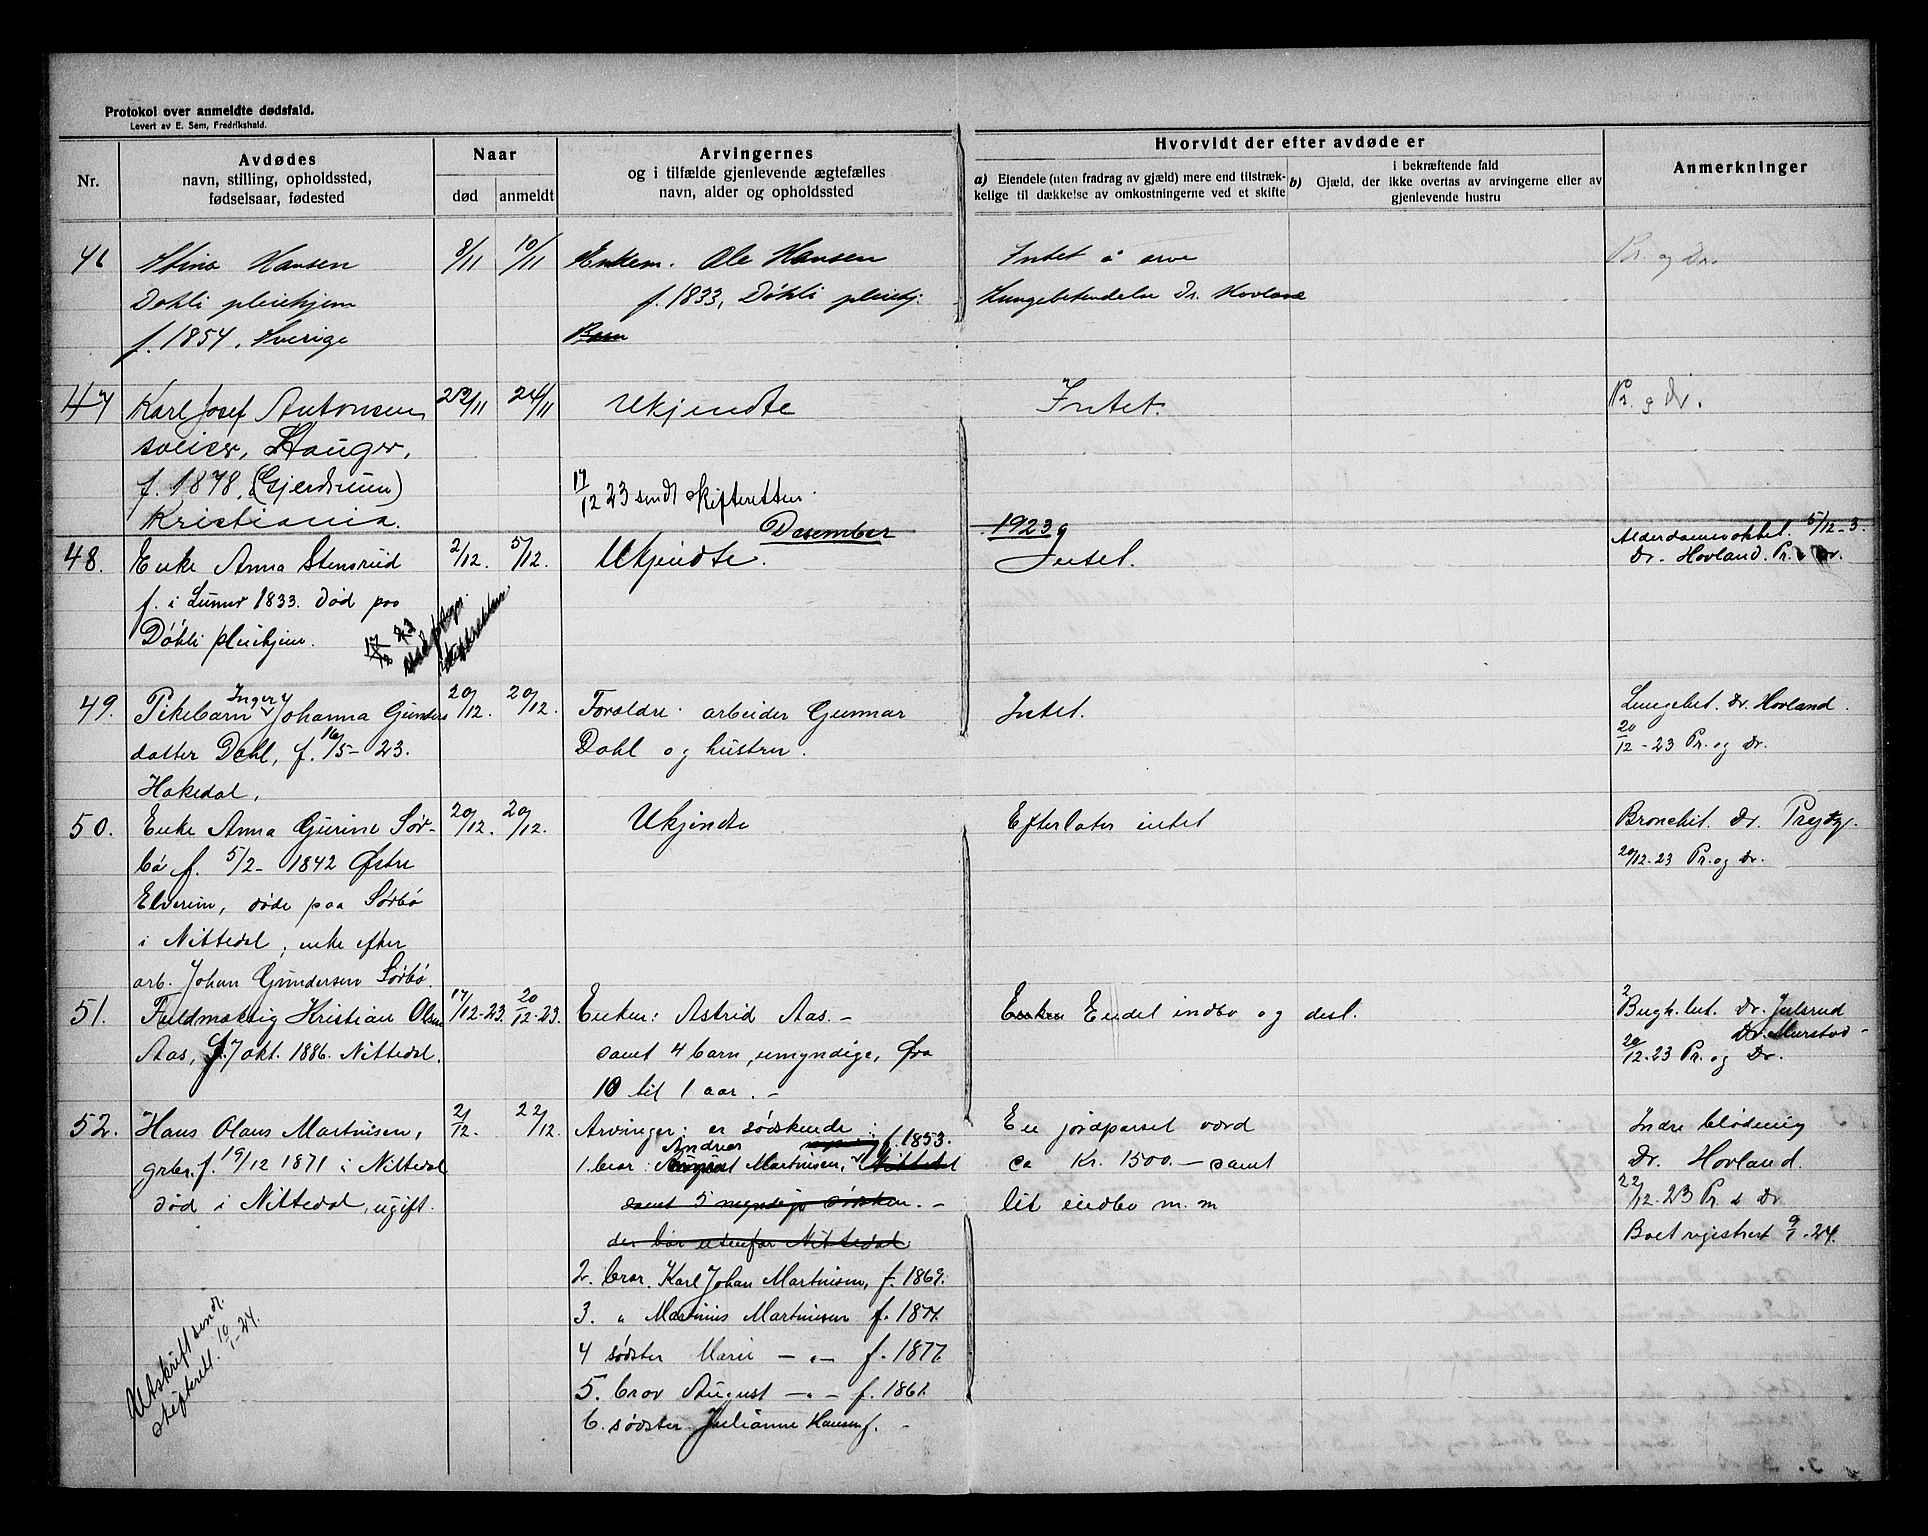 Protokol over anmeldte dødsfald.
Levert av E. Sem, Fredrikshald.
Nr.
Avdødes
navn, stilling, opholdssted,
fødselsaar, fødested
Naar
død
anmeldt
Arvingernes
og i tilfælde gjenlevende ægtefælles
navn, alder og opholdssted
Hvorvidt der efter avdøde er
a) Eiendele (uten fradrag av gjæld) mere end tilstræk-
kelige til dækkelse av omkostningerne ved et skifte
i bekræftende fald
b) Gjæld, der ikke overtas av arvingerne eller av
gjenlevende hustru
Anmerkninger
46
Stina Hansen
Døhli pleiehjem
f. 1854, Sverige
9/11
10/11
Enkem. Ole Hansen
f. 1833, Døhli pleiehj.
Barn
Intet å arve
Lungebetendelse Dr. Hovland
Pr. og Dr.
47
Karl Josef Antonsen
sveiser, Hauger,
f. 1878, (Gjerdrum)
Kristiania.
24/11
Ukjendte
17/12 23 sendt skifteretten.
Intet.
Pr. og Dr.
Desember
1923
48.
Enke Anna Stensrud
f. i Lunner 1833. Død paa
Døhli pleiehjem.
17/12 23
2/12.
5/12.
Ukjendte.
Intet.
Alderdomssvakhet. 5/12-3.
Dr. Hovland. Pr. Dr.
49.
Pikebarn Inger Johanna Gunders
datter Dahl, f. 16/5-23.
Hakedal.
20/12.
20/12.
Foraldre: arbeider Gunnar
Dahl og hustru.
Intet.
Lungebet. Dr. Hovland.
20/12-23 Pr. og Dr.
50.
Enke Anna Gurine Sør-
bø f. 5/2-1842 Østre
Elverum, døde paa Sørbø
i Nittedal, enke efter
arb. Johan Gundersen Sørbø.
20/12.
20/12.
Ukjendte
Efterlater intet
Bronchit. Dr. Prytz.
20/12-23 Pr. og Dr.
51.
Fuldmæktig Kristian Olsen
Aas, f. 7 okt. 1886. Nittedal.
17/12-23.
20/12-23.
Enken: Astrid Aas.-
samt 4 barn, umyndige, fra
10 til 1 aar.-
Enken Endel indbo og desl.
Bugh.bet. Dr. Julsrud
Dr. Murstad-
20/12-23 Pr. og Dr.
52.
Hans Olaus Martinsen,
grbr. f. 19/12 1871 i Nittedal
død i Nittedal, ugift.
Utskrift sendt
skifterett. 10/1-24.
2/12.
22/12.
Arvinger: er søskende:
1. bror: Andreas August Martinsen, Nittedal f. 1853.
samt 5 myndige søsken.-
der bor utenfor Nittedal
2. bror. Karl Johan Martinsen, f. 1869.
3. " Martinus Martinsen f. 1874.
4 søster Marie - " - f. 1877.
5. bror August - " - f. 1861.
6. søster Julianne Hansen f. -
En jordparsel værd
ca Kr. 1500.- samt
lit indbo m.m
Indre blødning
Dr. Hovland.
22/12-23 Pr. & Dr
Boet registrert 9/1-24.